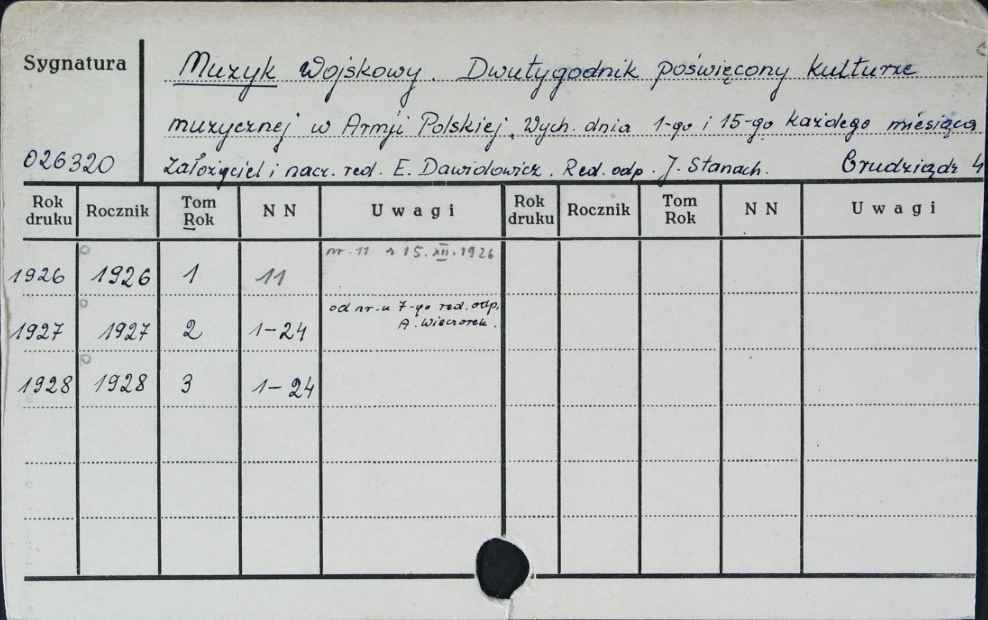 Sygnatura
Muzyk Wojskowy. Dwutygodnik poświęcony kulturze
muzycznej w Armji Polskiej. Wych. dnia 1-go i 15-go każdego miesiąca
026320 Założyciel i nacz. red. E. Dawidowicz. Red. odp. J. Stanach. Grudziądz 4
Rok druku Rocznik Tom Rok N N Uwagi Rok druku Rocznik Tom Rok N N Uwagi
1926 1926 1 11 nr. 11 z 15.XII.1926
1927 1927 2 1-24 od nr-u 7-go red. odp.
A. Wieczorek.
1928 1928 3 1-24